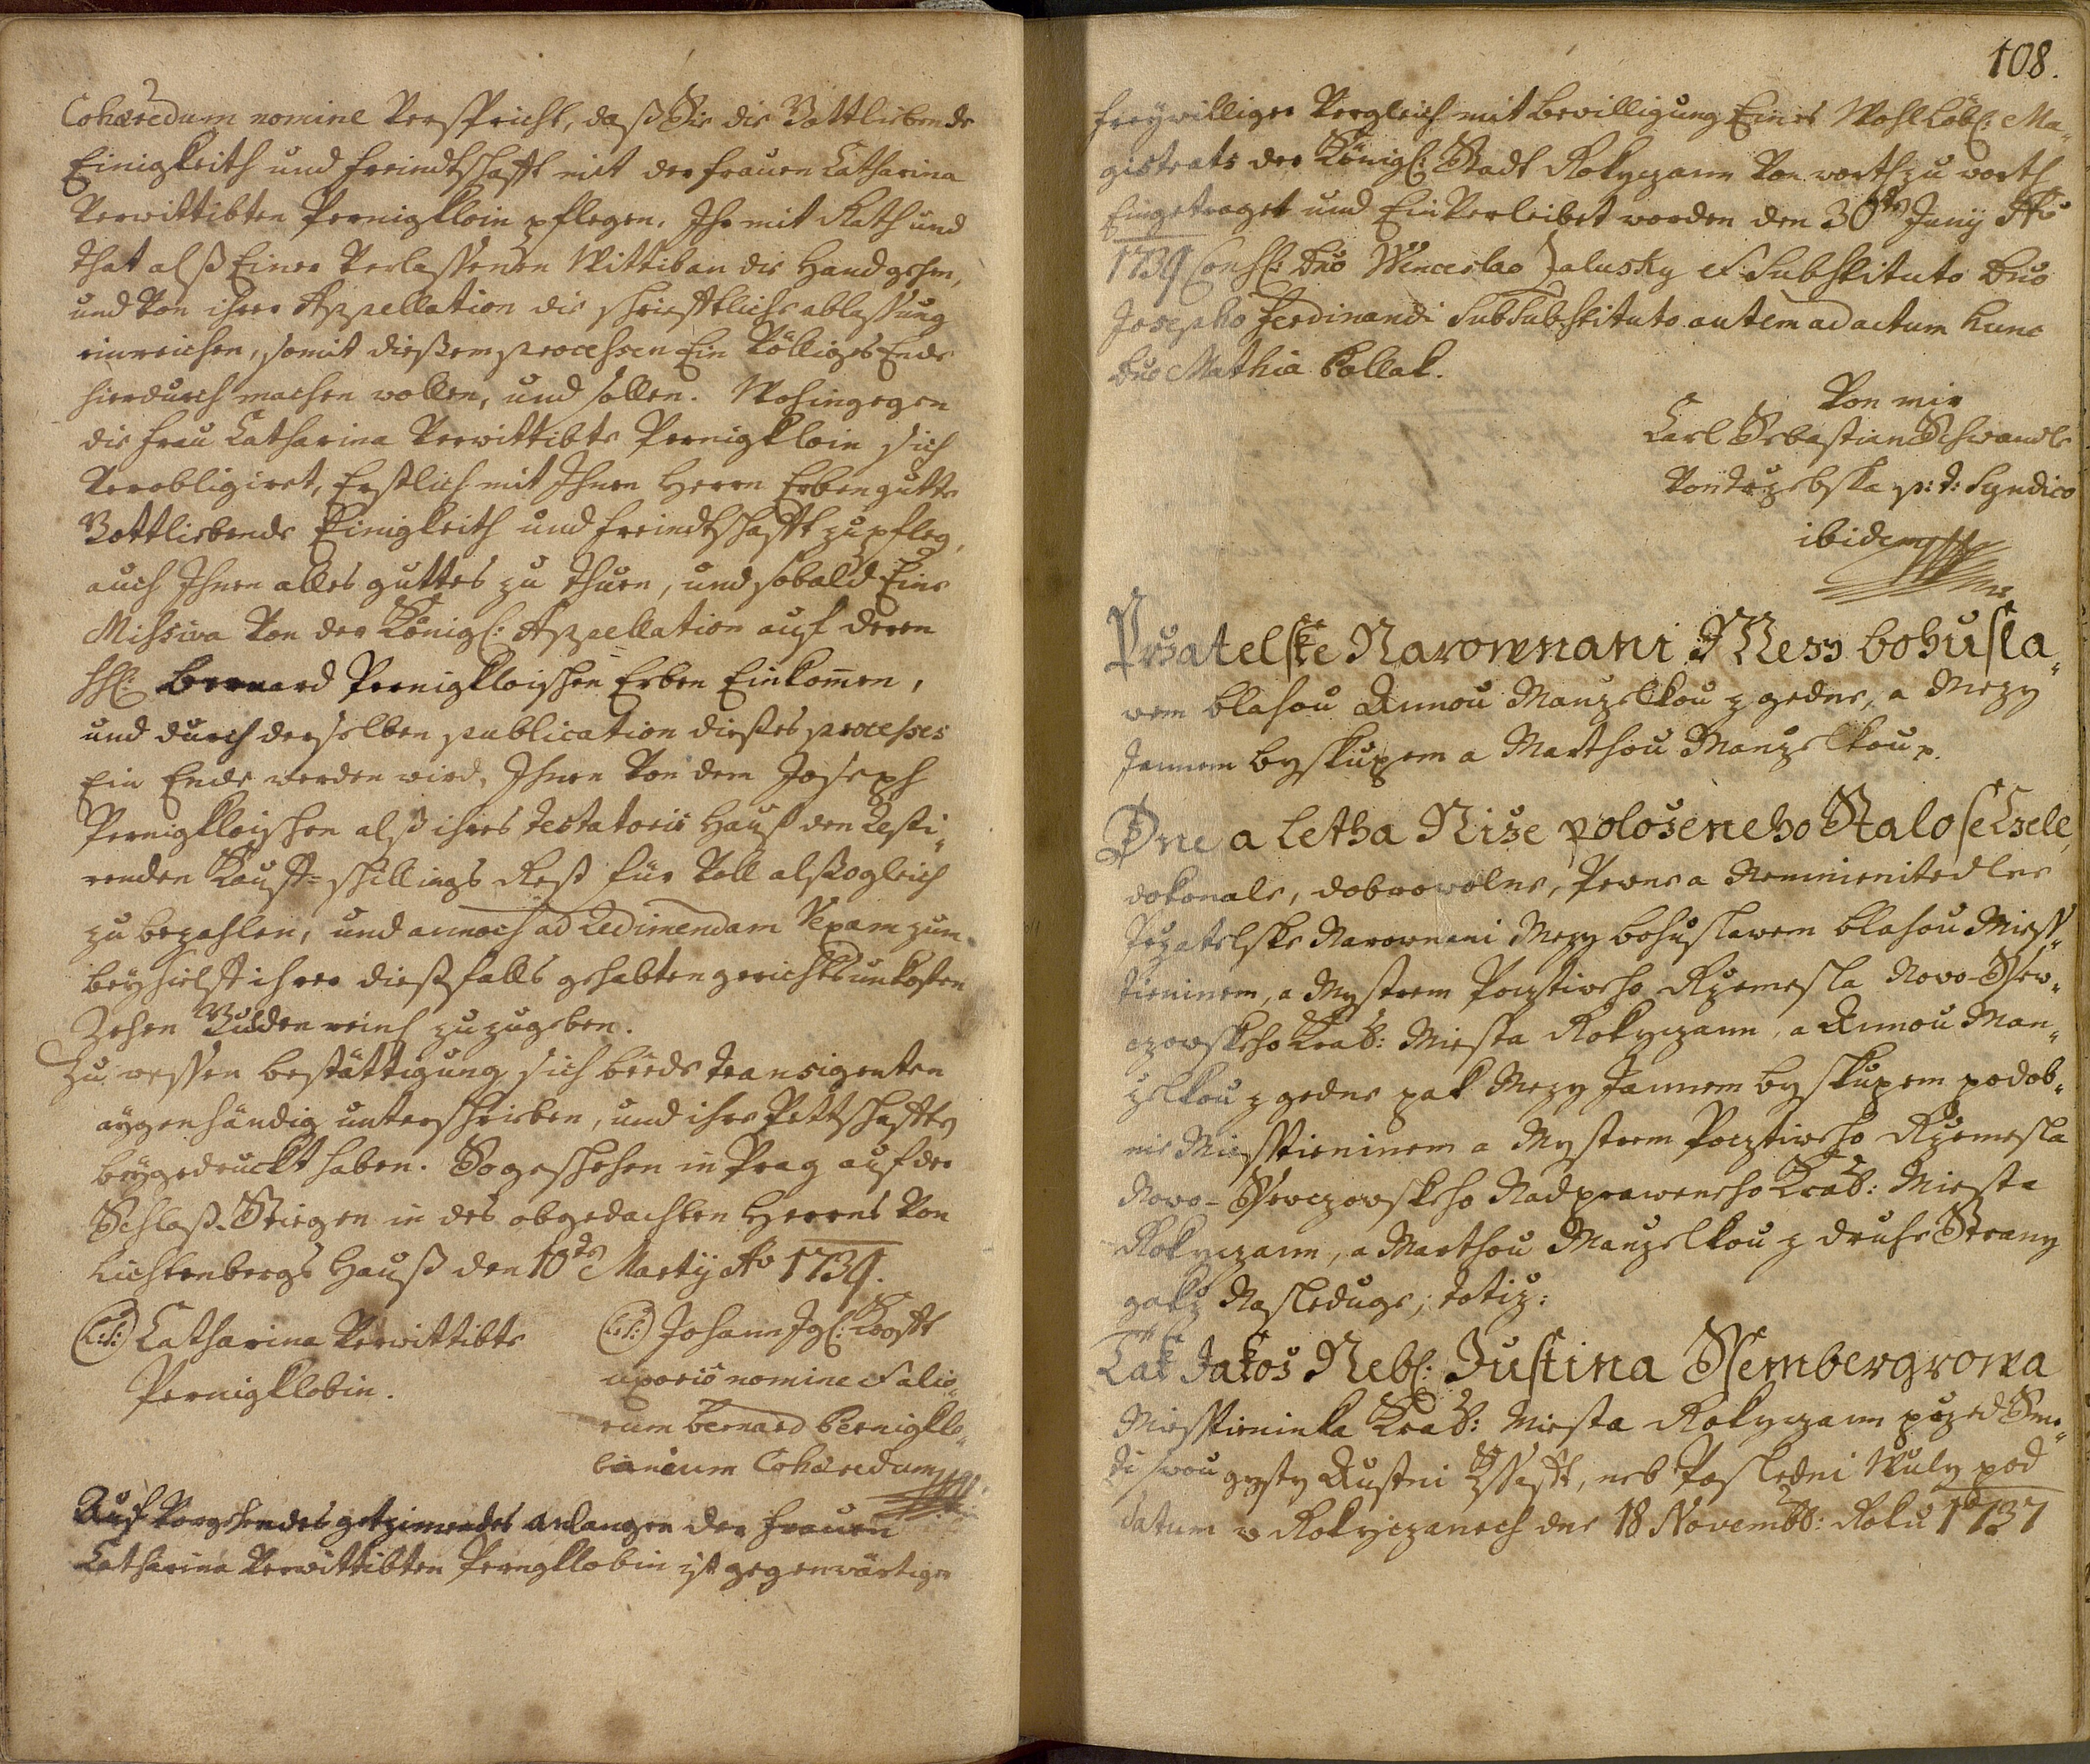 Cohæredum nomine Verspricht, daß Sie die Gottliebende
Einigkeith und freindtschafft mit der frauen Catharina
Verwittibten Pernigkloin pflegen. Ihr mit Rath und
that alß Einer Verlassenen Wittiban die Hand gehen,
und Von ihrer Appellation die schrifftliche ablassung
einreichen, somit dießem processen Ein Völliges Ende
hierdurch machen wollen, und sollen. Wohingegen
die frau Catharina Verwittibte Pernigkloin sich
Verobligiret, Erstlich mit Ihnen Herrn Erben gutte
Gottliebende Einigkeith und freindtschafft zu pfleg,
auch Ihnen alles guttes zu thuen, und sobald Eine
Missiva Von der Königl: Appellation auf deren
HH: Bernard Pernigkloischen Erben Einkom̄en,
und durch derselben publication dießes processes
Ein Ende werden wird, Ihnen Von dem Joseph
Pernigkloischen alß ihres testatoris Hauß den Resti„
renden Kauff-schillings Rest für Voll alßogleich
zu bezahlen, und annoch ad Redimendam Vexam zum
beyhielf ihrer dießfalls gehabten gerichtsunkosten
Zehen Gulden reinl zuzugeben.
Zu wessen bestättigung sich beede transigenten
aygenhändig unterschrieben, und ihre Pettschaffte
beygedruckt haben. So geschehen in Prag auf der
Schloß-Stiegen in des obgedachten Herrns Von
Lichtenbergs Hauß den 10te Martij Ao 1739.
(L:S:) Catharina Verwittibte
Pernigklobin.
(L:S:) Johann Jgl: Krofft
uxorio nomine et alio„
rum Bernard Pernigklo„
bianarum Cohæredum
Auf Vorgehendes gezimendes anlangen der frauen
Catharina Verwittibten Perngklobin ist gegenwärtiger
108.
freywilliger Vergleich mit bewilligung Eines Wohl Löbl: Ma„
gistrats der Königl: Stadt Rokyczann Von worth zu worth
Eingetraget und Ein Verleibet worden den 30te Junij Ao
1739 Cons: Dno Wenceslao Zalusky et Substituto Dno
Josepho Ferdinandi SubSubstituto autem ad actum hunc
Dno Mathia Pollak.
Von mir
Carl Sebastian Schwandt
Von p: t: Syndico
ibidem
Przatelske Narownani Mezy bohusla„
wem blahou Annou Manzelkou z gedne, a Mezy
Jannem byskupem a Marthou Manzelkou p.
Dne a Letha Nize polozeneho Stalo se Czele,
dokonale, dobrowolne, Pewne a Nemienitedlne
Przatelske Narownani Mezy bohuslawem blahou Miess„
tieninem, a Mystrem Pocztiweho Rzemesla Nowo-Ssew„
czowskeho Kral: Miesta Rokyczann, a Annou Man„
zelkou z gedne pak Mezy Jannem byskupem podob„
nie Miesstieninem a Mystrem Pocztiweho Rzemesla
Nowo-Ssewczowskeho Nadpraweneho Kral: Miesta
Rokyczann, a Marthou Manzelkou z druhe Strany
gakz Nasleduge; totiz:
Tak Jakoz Nebl: Justina Ssembergrowa
Miesstieninka Kral: Miesta Rokyczann przed Smr„
ti swou gysty Austni Kssaft, neb Posledni Wuly pod
datum w Rokyczanech dne 18 Novembr: Roku 1737